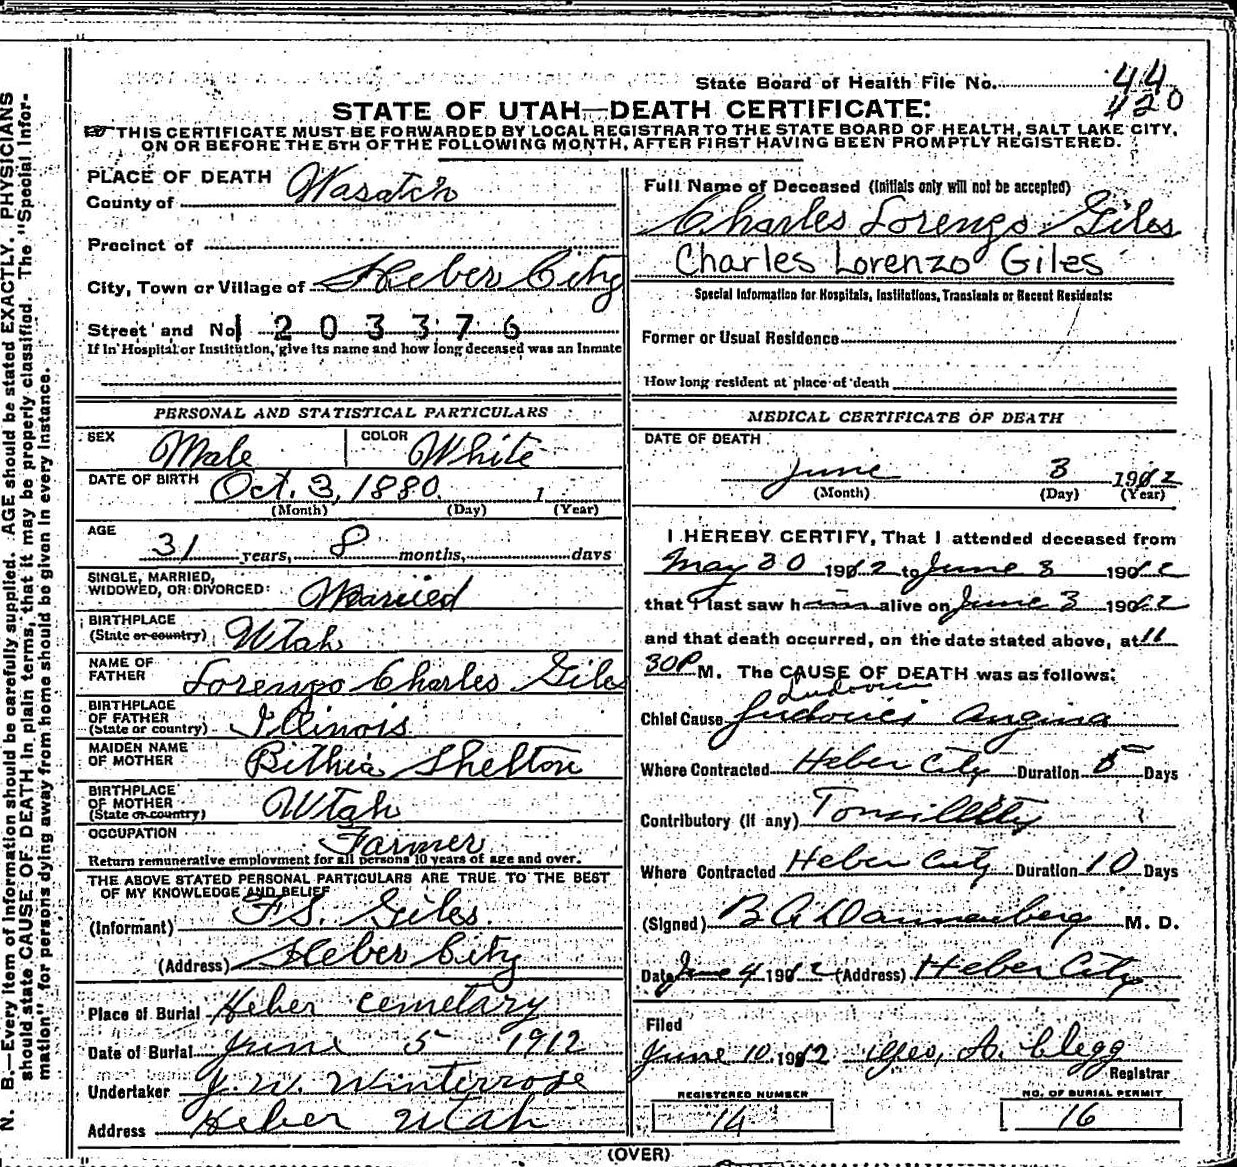 State Board of Health File No. 44
420
STATE OF UTAH—DEATH CERTIFICATE:
THIS CERTIFICATE MUST BE FORWARDED BY LOCAL REGISTRAR TO THE STATE BOARD OF HEALTH, SALT LAKE CITY,
ON OR BEFORE THE 5TH OF THE FOLLOWING MONTH, AFTER FIRST HAVING BEEN PROMPTLY REGISTERED.
PLACE OF DEATH
County of Wasatch
Precinct of
City, Town or Village of Heber City
Street and No 203376
If in Hospital or Institution, give its name and how long deceased was an Inmate
PERSONAL AND STATISTICAL PARTICULARS
SEX Male COLOR White
DATE OF BIRTH Oct. 3, 1880 1
(Month) (Day) (Year)
AGE
31 years, 8 months, days
SINGLE, MARRIED,
WIDOWED, OR DIVORCED: Married
BIRTHPLACE
(State or country) Utah
NAME OF
FATHER Lorenzo Charles Giles
BIRTHPLACE
OF FATHER
(State or country) Illinois
MAIDEN NAME
OF MOTHER Bithia Shelton
BIRTHPLACE
OF MOTHER
(State or country) Utah
OCCUPATION Farmer
Return remunerative employment for all persons 10 years of age and over.
THE ABOVE STATED PERSONAL PARTICULARS ARE TRUE TO THE BEST
OF MY KNOWLEDGE AND BELIEF
(Informant) F S. Giles.
(Address) Heber City
Place of Burial Heber cemetary
Date of Burial June 5 1912
Undertaker J. W. Winterrose
Address Heber Utah
Full Name of Deceased (Initials only will not be accepted)
Charles Lorenzo Giles
Charles Lorenzo Giles
Special Information for Hospitals, Institutions, Transients or Recent Residents:
Former or Usual Residence
How long resident at place of death
MEDICAL CERTIFICATE OF DEATH
DATE OF DEATH
June 3 1912
(Month) (Day) (Year)
I HEREBY CERTIFY, That I attended deceased from
May 30 1912 to June 3 1912
that I last saw him alive on June 3 1912
and that death occurred, on the date stated above, at 11
30 P M. The CAUSE OF DEATH was as follows:
Ludovici
Chief Cause Ludovici Angina
Where Contracted Heber City Duration 5 Days
Contributory (If any)
Where Contracted Heber City Duration 10 Days
(Signed) B A Dannenberg M. D.
Date June 4 1912 (Address) Heber City
Filed
June 10 1912 Geo, A. Clegg
Registrar
REGISTERED NUMBER
14
NO. OF BURIAL PERMIT
16
(OVER)
N. B.—Every item of information should be carefully supplied. AGE should be stated EXACTLY. PHYSICIANS
should state CAUSE OF DEATH in plain terms, that it may be properly classified. The "Special Infor-
mation" for persons dying away from home should be given in every instance.